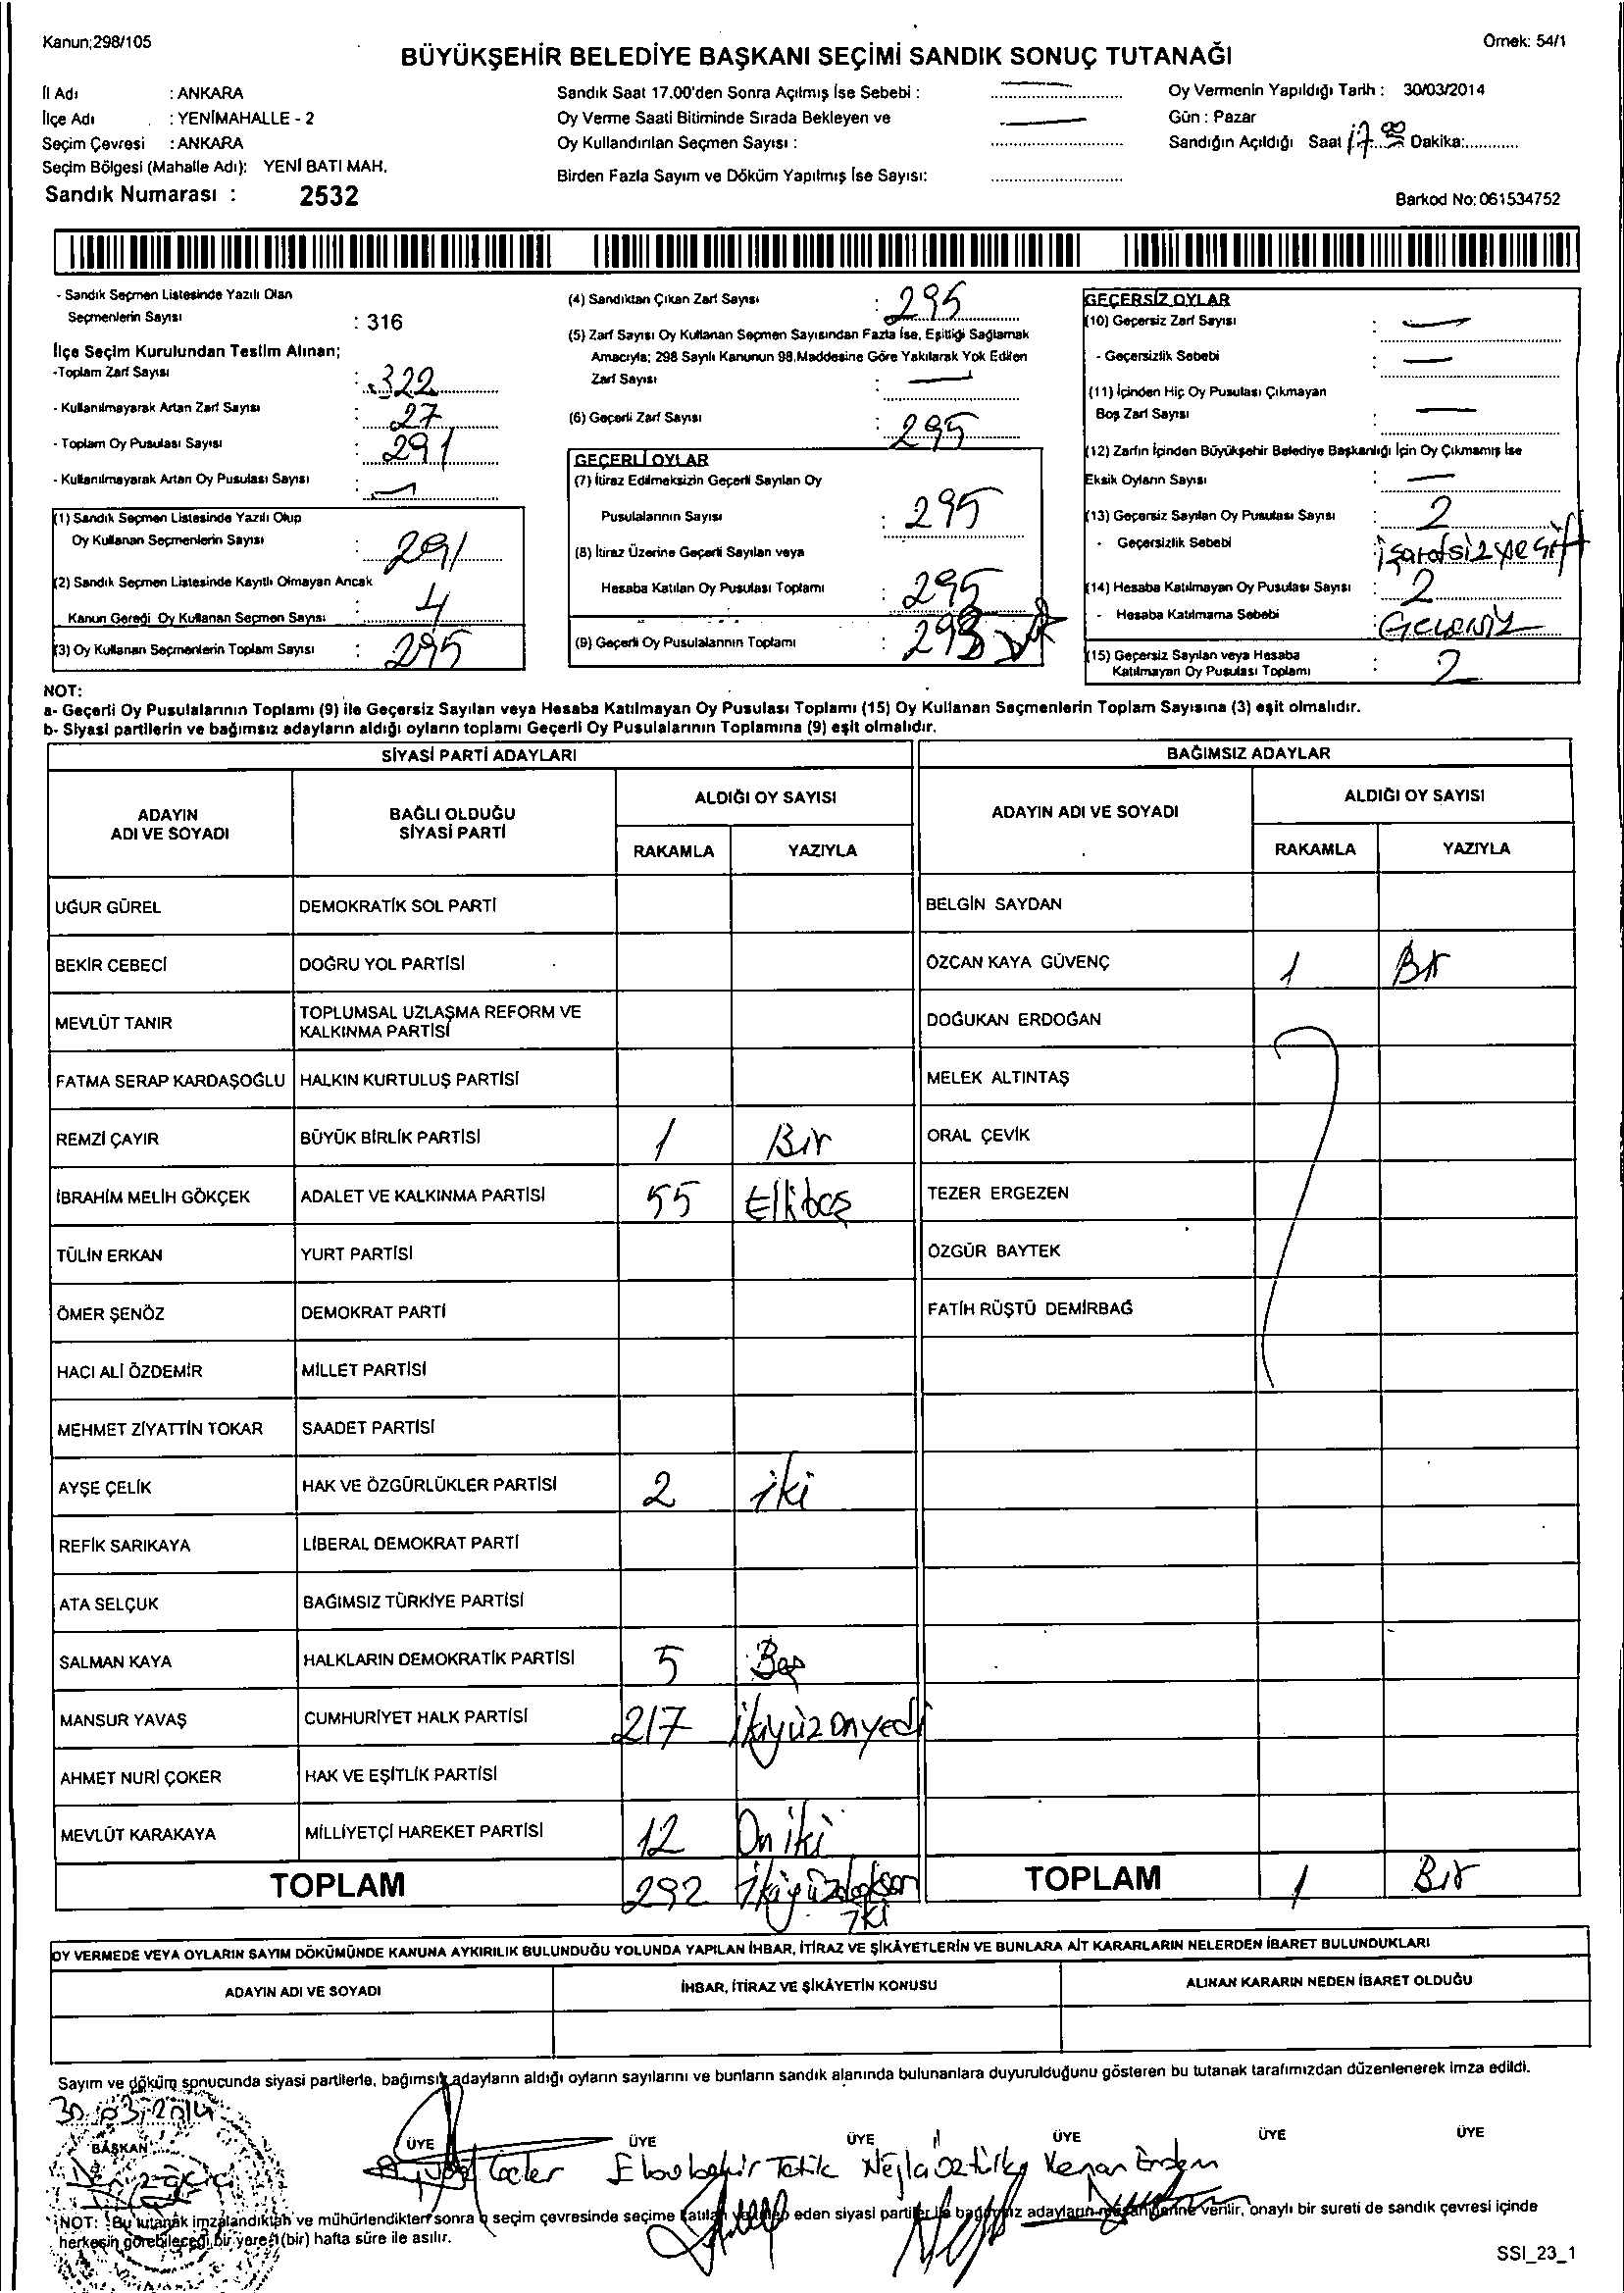 Kanun;298/105
Örnek: 54/1
BÜYÜKŞEHİR BELEDİYE BAŞKANI SEÇİMİ SANDIK SONUÇ TUTANAĞI
İl Adı : ANKARA
İlçe Adı : YENİMAHALLE - 2
Seçim Çevresi : ANKARA
Seçim Bölgesi (Mahalle Adı): YENİ BATI MAH.
Sandık Numarası : 2532
Sandık Saat 17.00'den Sonra Açılmış İse Sebebi :
Oy Verme Saati Bitiminde Sırada Bekleyen ve
Oy Kullandırılan Seçmen Sayısı :
Birden Fazla Sayım ve Döküm Yapılmış İse Sayısı:
Oy Vermenin Yapıldığı Tarih : 30/03/2014
Gün : Pazar
Sandığın Açıldığı Saat 17.00 Dakika:
Barkod No: 061534752
- Sandık Seçmen Listesinde Yazılı Olan
Seçmenlerin Sayısı : 316
İlçe Seçim Kurulundan Teslim Alınan;
-Toplam Zarf Sayısı : 322
- Kullanılmayarak Artan Zarf Sayısı : 27
- Toplam Oy Pusulası Sayısı : 291
- Kullanılmayarak Artan Oy Pusulası Sayısı : —
(1) Sandık Seçmen Listesinde Yazılı Olup
Oy Kullanan Seçmenlerin Sayısı : 291
(2) Sandık Seçmen Listesinde Kayıtlı Olmayan Ancak
Kanun Gereği Oy Kullanan Seçmen Sayısı : 4
(3) Oy Kullanan Seçmenlerin Toplam Sayısı : 295
(4) Sandıktan Çıkan Zarf Sayısı : 295
(5) Zarf Sayısı Oy Kullanan Seçmen Sayısından Fazla İse, Eşitliği Sağlamak
Amacıyla; 298 Sayılı Kanunun 98.Maddesine Göre Yakılarak Yok Edilen
Zarf Sayısı : —
(6) Geçerli Zarf Sayısı : 295
GEÇERLİ OYLAR
(7) İtiraz Edilmeksizin Geçerli Sayılan Oy
Pusulalarının Sayısı : 295
(8) İtiraz Üzerine Geçerli Sayılan veya
Hesaba Katılan Oy Pusulası Toplamı : 295
(9) Geçerli Oy Pusulalarının Toplamı : 293
GEÇERSİZ OYLAR
(10) Geçersiz Zarf Sayısı : —
- Geçersizlik Sebebi : —
(11) İçinden Hiç Oy Pusulası Çıkmayan
Boş Zarf Sayısı : —
(12) Zarfın İçinden Büyükşehir Belediye Başkanlığı İçin Oy Çıkmamış İse
Eksik Oyların Sayısı : —
(13) Geçersiz Sayılan Oy Pusulası Sayısı : 2
- Geçersizlik Sebebi :
(14) Hesaba Katılmayan Oy Pusulası Sayısı : 2
- Hesaba Katılmama Sebebi :
(15) Geçersiz Sayılan veya Hesaba
Katılmayan Oy Pusulası Toplamı : 2
NOT:
a- Geçerli Oy Pusulalarının Toplamı (9) ile Geçersiz Sayılan veya Hesaba Katılmayan Oy Pusulası Toplamı (15) Oy Kullanan Seçmenlerin Toplam Sayısına (3) eşit olmalıdır.
b- Siyasi partilerin ve bağımsız adayların aldığı oyların toplamı Geçerli Oy Pusulalarının Toplamına (9) eşit olmalıdır.
SİYASİ PARTİ ADAYLARI
ADAYIN ADI VE SOYADI
BAĞLI OLDUĞU SİYASİ PARTİ
ALDIĞI OY SAYISI
RAKAMLA YAZIYLA
UĞUR GÜREL DEMOKRATİK SOL PARTİ
BEKİR CEBECİ DOĞRU YOL PARTİSİ
MEVLÜT TANIR TOPLUMSAL UZLAŞMA REFORM VE KALKINMA PARTİSİ
FATMA SERAP KARDAŞOĞLU HALKIN KURTULUŞ PARTİSİ
REMZİ ÇAYIR BÜYÜK BİRLİK PARTİSİ 1 Bir
İBRAHİM MELİH GÖKÇEK ADALET VE KALKINMA PARTİSİ 55 Ellibeş
TÜLİN ERKAN YURT PARTİSİ
ÖMER ŞENÖZ DEMOKRAT PARTİ
HACI ALİ ÖZDEMİR MİLLET PARTİSİ
MEHMET ZİYATTİN TOKAR SAADET PARTİSİ
AYŞE ÇELİK HAK VE ÖZGÜRLÜKLER PARTİSİ 2 iki
REFİK SARIKAYA LİBERAL DEMOKRAT PARTİ
ATA SELÇUK BAĞIMSIZ TÜRKİYE PARTİSİ
SALMAN KAYA HALKLARIN DEMOKRATİK PARTİSİ 5 Beş
MANSUR YAVAŞ CUMHURİYET HALK PARTİSİ 217 ikiyüzonyedi
AHMET NURİ ÇOKER HAK VE EŞİTLİK PARTİSİ
MEVLÜT KARAKAYA MİLLİYETÇİ HAREKET PARTİSİ 12 On iki
TOPLAM 292 ikiyüzdoksan iki
BAĞIMSIZ ADAYLAR
ADAYIN ADI VE SOYADI
ALDIĞI OY SAYISI
RAKAMLA YAZIYLA
BELGİN SAYDAN
ÖZCAN KAYA GÜVENÇ 1 Bir
DOĞUKAN ERDOĞAN
MELEK ALTINTAŞ
ORAL ÇEVİK
TEZER ERGEZEN
ÖZGÜR BAYTEK
FATİH RÜŞTÜ DEMİRBAĞ
TOPLAM 1 Bir
OY VERMEDE VEYA OYLARIN SAYIM DÖKÜMÜNDE KANUNA AYKIRILIK BULUNDUĞU YOLUNDA YAPILAN İHBAR, İTİRAZ VE ŞİKÂYETLERİN VE BUNLARA AİT KARARLARIN NELERDEN İBARET BULUNDUKLARI
ADAYIN ADI VE SOYADI
İHBAR, İTİRAZ VE ŞİKÂYETİN KONUSU
ALINAN KARARIN NEDEN İBARET OLDUĞU
Sayım ve döküm sonucunda siyasi partilerle, bağımsız adayların aldığı oyların sayılarını ve bunların sandık alanında bulunanlara duyurulduğunu gösteren bu tutanak tarafımızdan düzenlenerek imza edildi.
30.03.2014
BAŞKAN ÜYE ÜYE ÜYE ÜYE ÜYE ÜYE
Ebubekir Tetik Nejla Öztürk Kenan Erdem
NOT: Bu tutanak imzalandıktan ve mühürlendikten sonra o seçim çevresinde seçime katılan ve talep eden siyasi partiler ile bağımsız adayların müşahitlerine verilir, onaylı bir sureti de sandık çevresi içinde
herkesin görebileceği bir yere 1(bir) hafta süre ile asılır.
SSI_23_1